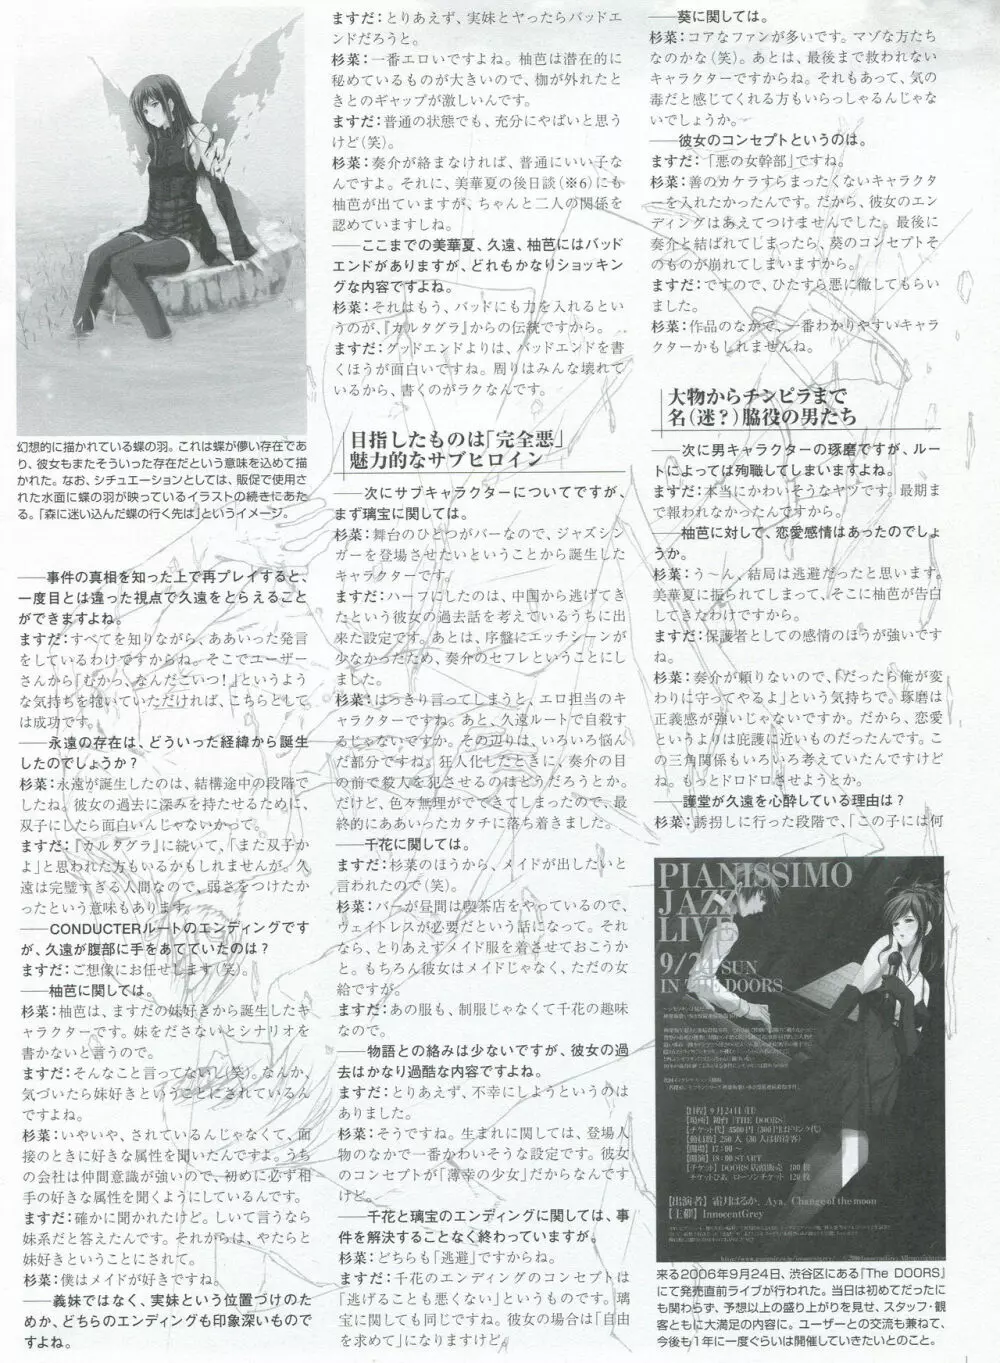 幻想的に描かれている蝶の羽。これは蝶が儚い存在であ
り、彼女もまたそういった存在だという意味を込めて描
かれた。なお、シチュエーションとしては、販促で使用さ
れた水面に蝶の羽が映っているイラストの続きにあた
る。「森に迷い込んだ蝶の行く先は」というイメージ。
――事件の真相を知った上で再プレイすると、
一度目とは違った視点で久遠をとらえること
ができますよね。
ますだ：すべてを知りながら、ああいった発言
をしているわけですからね。そこでユーザー
さんから「むかっ、なんだこいつ！」というよう
な気持ちを抱いていただければ、こちらとして
は成功です。
――永遠の存在は、どういった経緯から誕生
したのでしょうか？
杉菜：永遠が誕生したのは、結構途中の段階で
したね。彼女の過去に深みを持たせるために、
双子にしたら面白いんじゃないかって。
ますだ：『カルタグラ』に続いて、「また双子か
よ」と思われた方もいるかもしれませんが。久
遠は完璧すぎる人間なので、弱さをつけたか
ったという意味もあります。
――CONDUCTERルートのエンディングです
が、久遠が腹部に手をあてていたのは？
ますだ：ご想像にお任せします（笑）。
――柚芭に関しては。
杉菜：柚芭は、ますだの妹好きから誕生したキ
ャラクターです。妹をださないとシナリオを
書かないと言うので。
ますだ：そんなこと言ってないし（笑）。なんか、
気づいたら妹好きということにされているん
ですよね。
杉菜：いやいや、されているんじゃなくて、面
接のときに好きな属性を聞いたんですよ。うち
の会社は仲間意識が強いので、初めに必ず相
手の好きな属性を聞くようにしているんです。
ますだ：確かに聞かれたけど。しいて言うなら
妹系だと答えたんです。それからは、やたらと
妹好きということにされて。
杉菜：僕はメイドが好きですね。
――義妹ではなく、実妹という位置づけのた
めか、どちらのエンディングも印象深いもので
すよね。
ますだ：とりあえず、実妹とヤったらバッドエ
ンドだろうと。
杉菜：一番エロいですよね。柚芭は潜在的に
秘めているものが大きいので、枷が外れたと
きとのギャップが激しいんです。
ますだ：普通の状態でも、充分にやばいと思う
けど（笑）。
杉菜：奏介が絡まなければ、普通にいい子な
んですよ。それに、美華夏の後日談（※6）にも
柚芭が出ていますが、ちゃんと二人の関係を
認めていますしね。
――ここまでの美華夏、久遠、柚芭にはバッド
エンドがありますが、どれもかなりショッキン
グな内容ですよね。
杉菜：それはもう、バッドにも力を入れるとい
うのが、『カルタグラ』からの伝統ですから。
ますだ：グッドエンドよりは、バッドエンドを書
くほうが面白いですね。周りはみんな壊れて
いるから、書くのがラクなんです。
目指したものは「完全悪」
魅力的なサブヒロイン
――次にサブキャラクターについてですが、
まず璃宝に関しては。
杉菜：舞台のひとつがバーなので、ジャズシン
ガーを登場させたいということから誕生した
キャラクターです。
ますだ：ハーフにしたのは、中国から逃げてき
たという彼女の過去話を考えているうちに出
来た設定です。あとは、序盤にエッチシーンが
少なかったため、奏介のセフレということにし
ました。
杉菜：はっきり言ってしまうと、エロ担当のキ
ャラクターですね。あと、久遠ルートで自殺す
るじゃないですか。その辺りは、いろいろ悩ん
だ部分ですね。狂人化したときに、奏介の目
の前で殺人を犯させるのはどうだろうとか。
だけど、色々無理がでてきてしまったので、最
終的にああいったカタチに落ち着きました。
――千花に関しては。
ますだ：杉菜のほうから、メイドが出したいと
言われたので（笑）。
杉菜：バーが昼間は喫茶店をやっているので、
ウェイトレスが必要だという話になって。それ
なら、とりあえずメイド服を着させておこうか
と。もちろん彼女はメイドじゃなく、ただの女
給ですが。
ますだ：あの服も、制服じゃなくて千花の趣味
なので。
――物語との絡みは少ないですが、彼女の過
去はかなり過酷な内容ですよね。
ますだ：とりあえず、不幸にしようというのは
ありました。
杉菜：そうですね。生まれに関しては、登場人
物のなかで一番かわいそうな設定です。彼女
のコンセプトが「薄幸の少女」だからなんです
けど。
――千花と璃宝のエンディングに関しては、事
件を解決することなく終わっていますが。
杉菜：どちらも「逃避」ですからね。
ますだ：千花のエンディングのコンセプトは
「逃げることも悪くない」というものです。璃
宝に関しても同じですね。彼女の場合は「自由
を求めて」になりますけど。
――葵に関しては。
杉菜：コアなファンが多いです。マゾな方たち
なのかな（笑）。あとは、最後まで救われない
キャラクターですからね。それもあって、気の
毒だと感じてくれる方もいらっしゃるんじゃな
いでしょうか。
――彼女のコンセプトというのは。
ますだ：「悪の女幹部」ですね。
杉菜：善のカケラすらまったくないキャラクタ
ーを入れたかったんです。だから、彼女のエン
ディングはあえてつけませんでした。最後に
奏介と結ばれてしまったら、葵のコンセプトそ
のものが崩れてしまいますから。
ますだ：ですので、ひたすら悪に徹してもらい
ました。
杉菜：作品のなかで、一番わかりやすいキャラ
クターかもしれませんね。
大物からチンピラまで
名（迷？）脇役の男たち
――次に男キャラクターの琢磨ですが、ルー
トによっては殉職してしまいますよね。
ますだ：本当にかわいそうなヤツです。最期ま
で報われなかったんですから。
――柚芭に対して、恋愛感情はあったのでしょ
うか。
杉菜：う～ん、結局は逃避だったと思います。
美華夏に振られてしまって、そこに柚芭が告白
してきたわけですから。
ますだ：保護者としての感情のほうが強いです
ね。
杉菜：奏介が頼りないので、「だったら俺が変
わりに守ってやるよ」という気持ちで。琢磨は
正義感が強いじゃないですか。だから、恋愛
というよりは庇護に近いものだったんです。こ
の三角関係もいろいろ考えていたんですけど
ね。もっとドロドロさせようとか。
――護堂が久遠を心酔している理由は？
杉菜：誘拐しに行った段階で、「この子には何
PIANISSIMO
JAZZ
LIVE
9/24 SUN
IN THE DOORS
【日程】9月24日(日)
【場所】初台「THE DOORS」
【チケット代】3500円(500円はドリンク代)
【動員数】250人(30人は招待客)
【開場】17:00～
【開演】18:00 START
【チケット】DOORS店頭販売 100枚
チケットぴあ ローソンチケット 120枚
【出演者】霜月はるか、Aya、Change of the moon
【主催】InnocentGrey
来る2006年9月24日、渋谷区にある『The DOORS』
にて発売直前ライブが行われた。当日は初めてだったに
も関わらず、予想以上の盛り上がりを見せ、スタッフ・観
客ともに大満足の内容に。ユーザーとの交流も兼ねて、
今後も1年に一度ぐらいは開催していきたいとのこと。